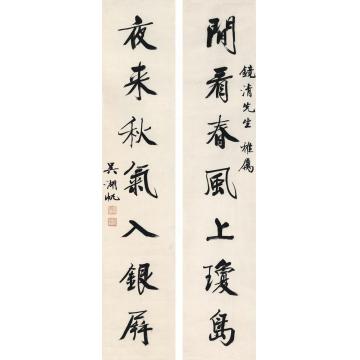 閒看春風上瓊島
鏡清先生雅屬
夜来秋氣入銀屏
吳湖帆